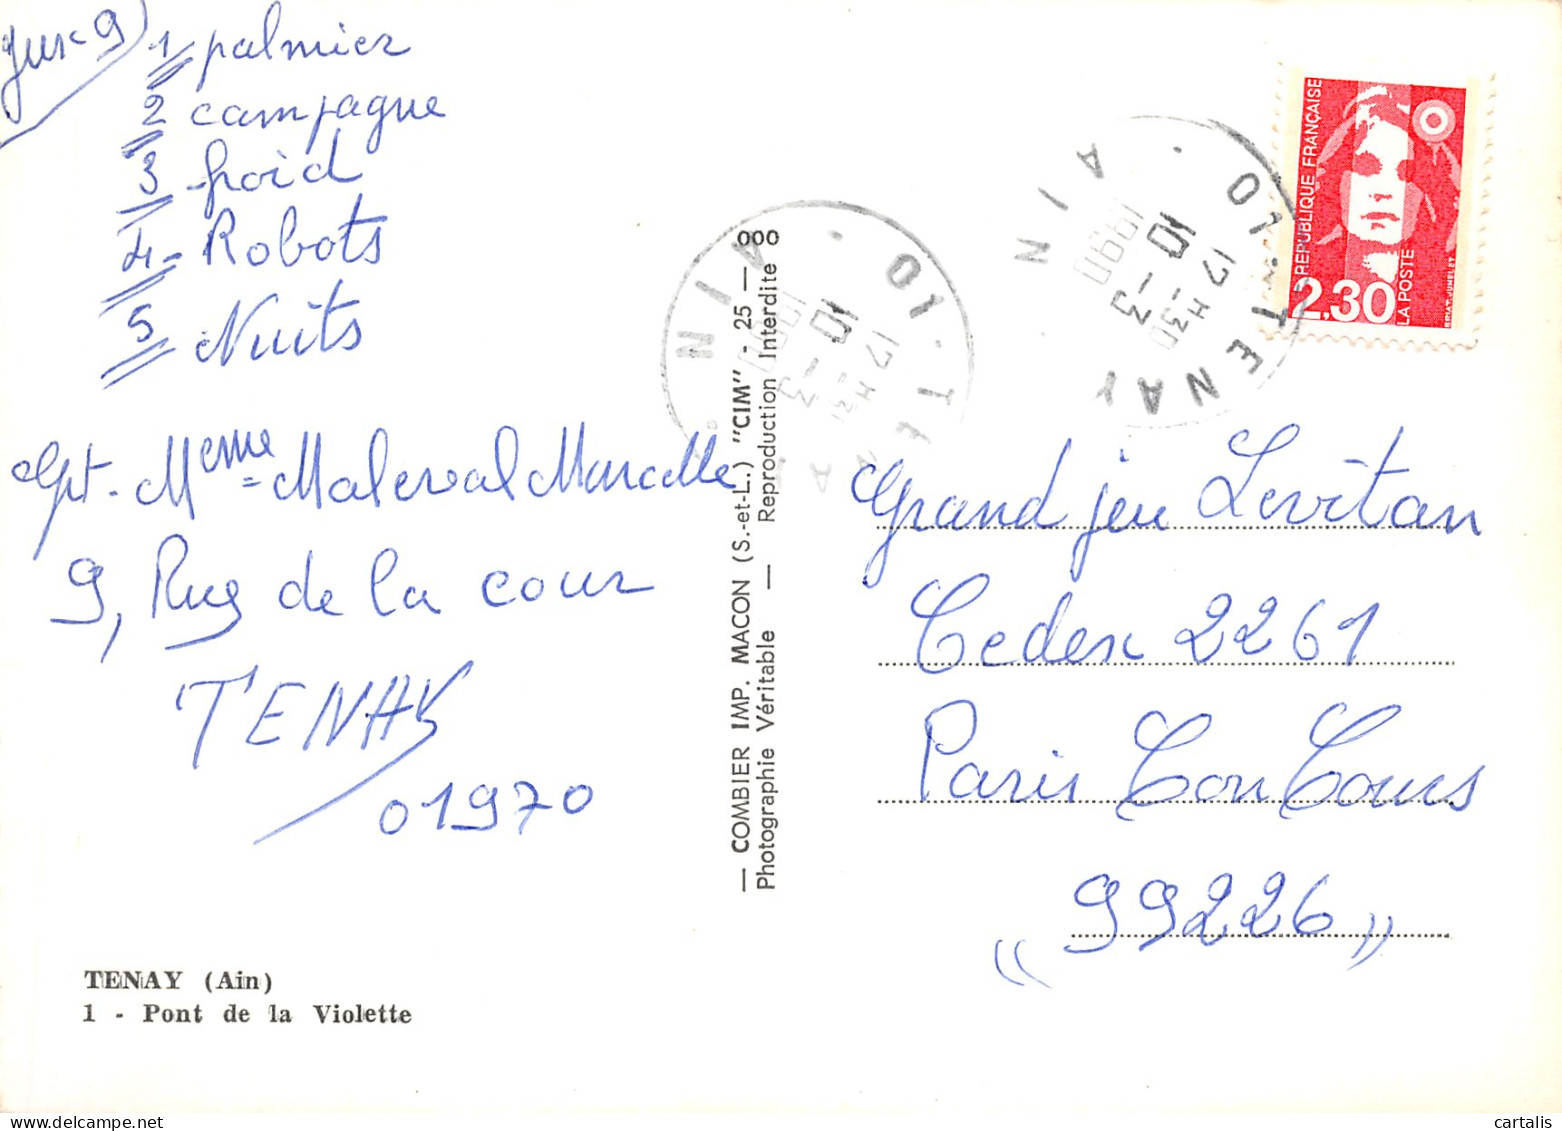 1 palmier
2 campagne
3 froid
4 - Robots
5 Nuits
Malerval Marcelle
9, Rue de la cour
TENAY
01970
TENAY (Ain)
1 - Pont de la Violette
— COMBIER IMP. MACON (S.-et-L.) "CIM" - 25 — 000
Photographie Véritable — Reproduction Interdite
01 - TENAY
AIN
17 H30
10 - 3
1990
01 - TENAY
AIN
17 H30
10 - 3
1990
REPUBLIQUE FRANÇAISE
2,30
LA POSTE
Grand jeu Levitan
Cedex 2261
Paris Concours
"99226"
cartalis